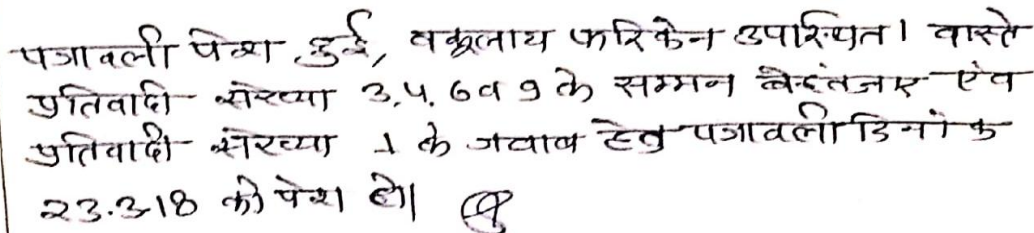 पत्रावली पेश हुई, वकूलाय फरिकेन उपस्थित। वास्ते
प्रतिवादी संख्या 3,4, 6 व 9 के सम्मन बेइंतजार एंव
प्रतिवादी संख्या 1 के जवाब हेतु पत्रावली दिनांक
23.3.18 को पेश हो।